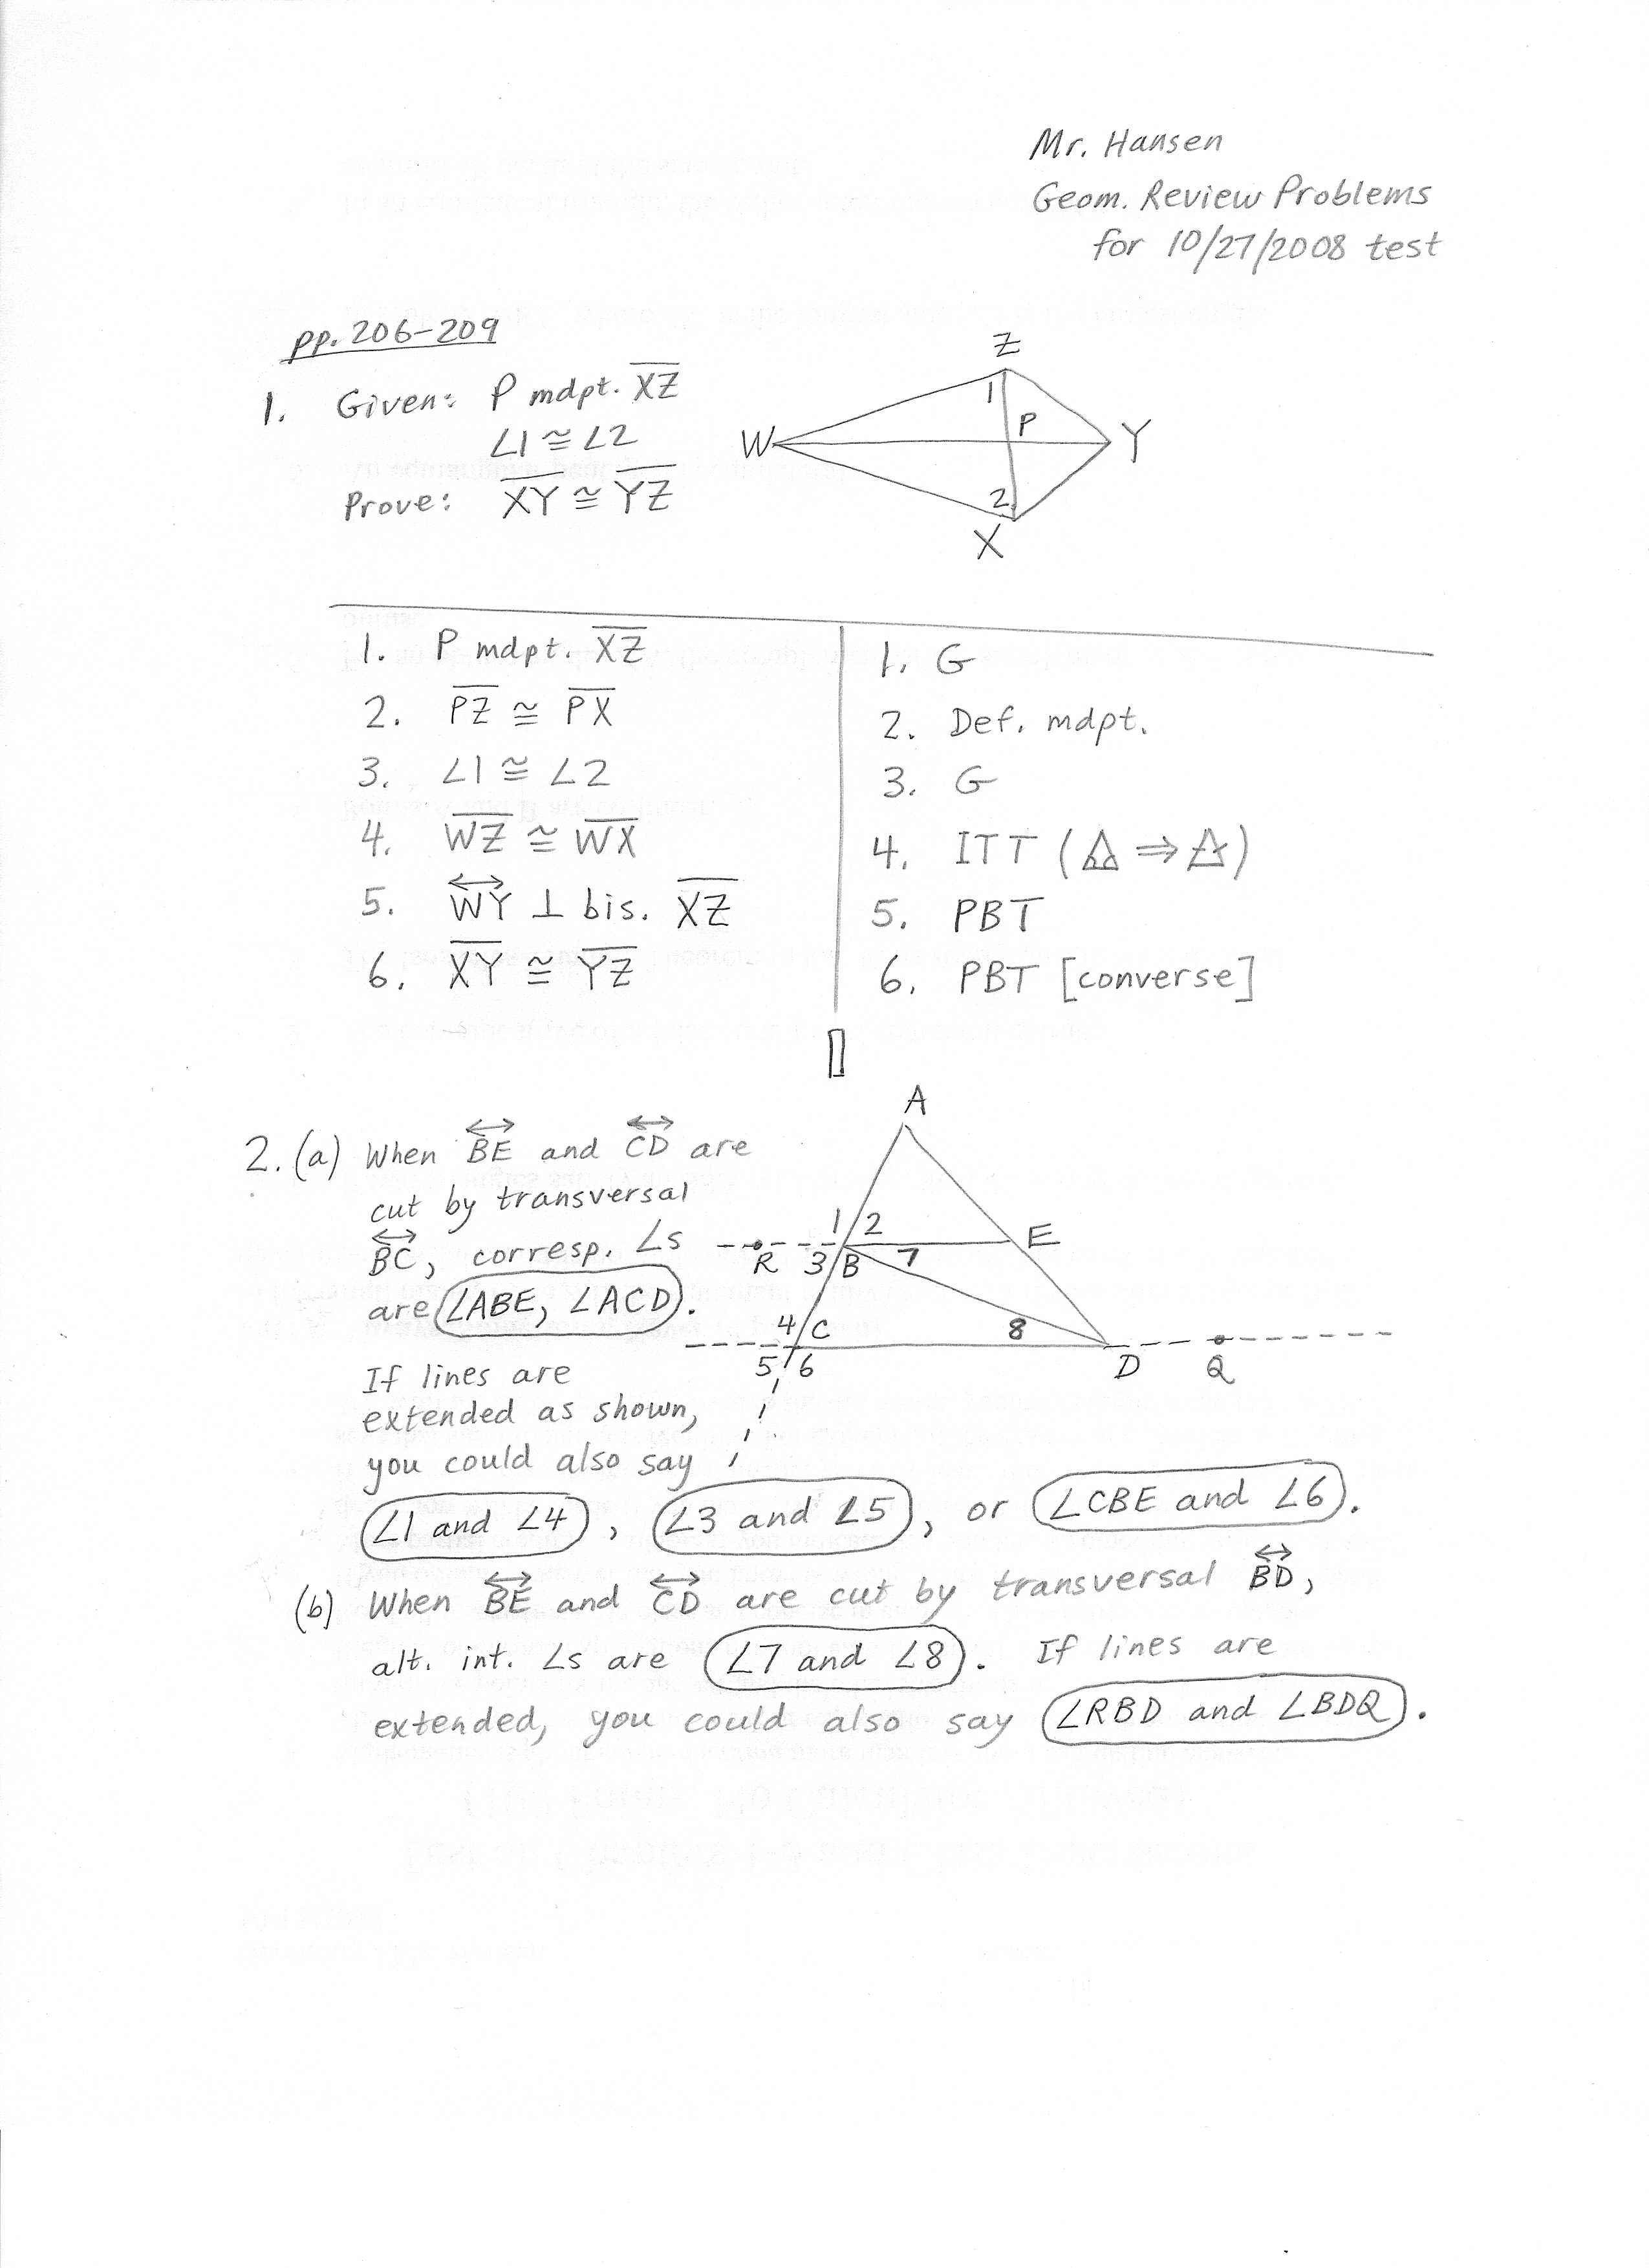 Mr. Hansen
Geom. Review Problems
for 10/27/2008 test
pp. 206-209
1. Given: P mdpt. X̅Z̅
∠1 ≅ ∠2
Prove: X̅Y̅ ≅ Y̅Z̅
Z
1
P
W
Y
2
X
1. P mdpt. X̅Z̅
1. G
2. P̅Z̅ ≅ P̅X̅
2. Def. mdpt.
3. ∠1 ≅ ∠2
3. G
4. W̅Z̅ ≅ W̅X̅
4. ITT (△ ⇒ △)
5. WY ⊥ bis. X̅Z̅
5. PBT
6. X̅Y̅ ≅ Y̅Z̅
6. PBT [converse]
2. (a) When BE and CD are
cut by transversal
BC, corresp. ∠s
are ∠ABE, ∠ACD.
If lines are
extended as shown,
you could also say
∠1 and ∠4, ∠3 and ∠5, or ∠CBE and ∠6.
A
1 2
E
R 3 B 7
4 C 8
5 6 D Q
(b) When BE and CD are cut by transversal BD,
alt. int. ∠s are ∠7 and ∠8. If lines are
extended, you could also say ∠RBD and ∠BDQ.